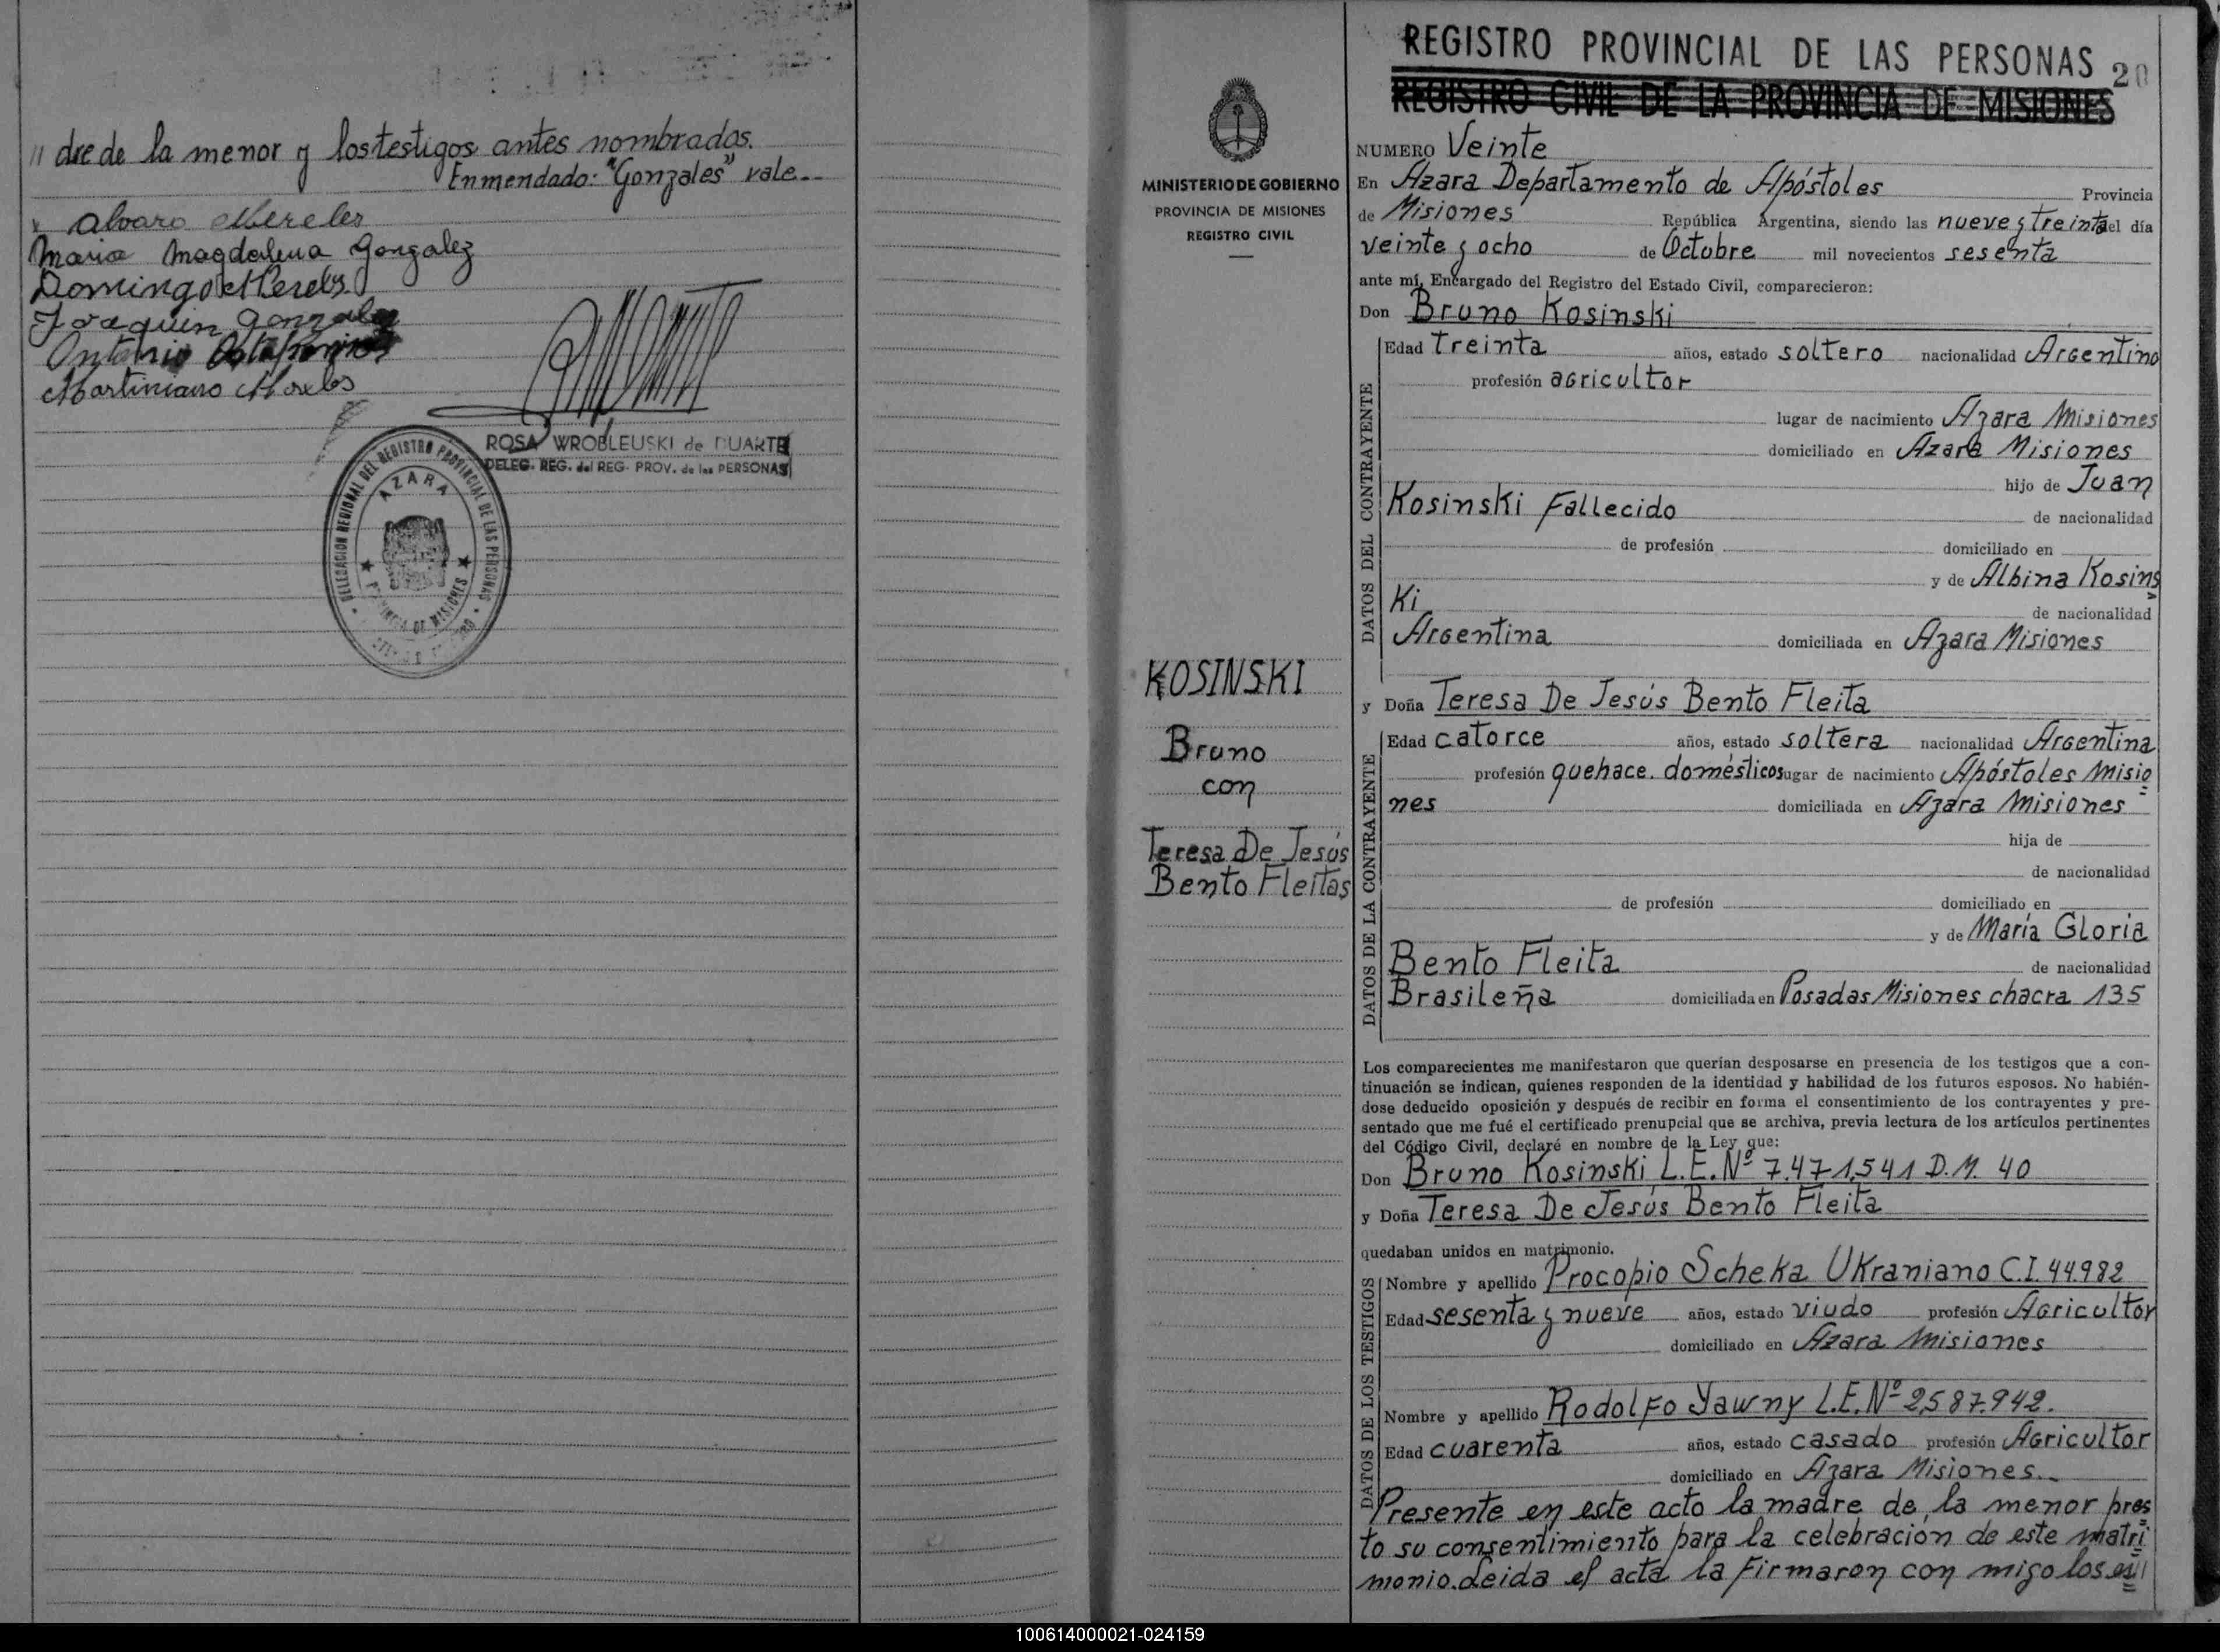 // dre de la menor y los testigos antes nombrados.
Enmendado: "Gonzales" vale..
Alvaro Mereles
Maria Magdalena Gonzalez
Domingo Mereles
Joaquin Gonzalez
Antonio
Martiniano
ROSA WROBLEUSKI de DUARTE
DELEG. REG. del REG. PROV. de las PERSONAS
DELEGACION REGIONAL DEL REGISTRO PROVINCIAL DE LAS PERSONAS
AZARA
PROVINCIA DE MISIONES
MINISTERIO DE GOBIERNO
PROVINCIA DE MISIONES
REGISTRO CIVIL
KOSINSKI
Bruno
con
Teresa De Jesús
Bento Fleitas
REGISTRO PROVINCIAL DE LAS PERSONAS 20
REGISTRO CIVIL DE LA PROVINCIA DE MISIONES
NUMERO Veinte
En Azara Departamento de Apóstoles Provincia
de Misiones República Argentina, siendo las nueve y treinta del día
veinte y ocho de Octubre mil novecientos sesenta
ante mí, Encargado del Registro del Estado Civil, comparecieron:
Don Bruno Kosinski
DATOS DEL CONTRAYENTE
Edad treinta años, estado soltero nacionalidad Argentino
profesión agricultor
lugar de nacimiento Azara Misiones
domiciliado en Azara Misiones
hijo de Juan
Kosinski Fallecido de nacionalidad
de profesión domiciliado en
y de Albina Kosins
ki de nacionalidad
Argentina domiciliada en Azara Misiones
y Doña Teresa De Jesús Bento Fleita
DATOS DE LA CONTRAYENTE
Edad catorce años, estado soltera nacionalidad Argentina
profesión quehace. domésticos lugar de nacimiento Apóstoles Misio=
nes domiciliada en Azara Misiones
hija de
de nacionalidad
de profesión domiciliado en
y de María Gloria
Bento Fleita de nacionalidad
Brasileña domiciliada en Posadas Misiones chacra 135
Los comparecientes me manifestaron que querían desposarse en presencia de los testigos que a con-
tinuación se indican, quienes responden de la identidad y habilidad de los futuros esposos. No habién-
dose deducido oposición y después de recibir en forma el consentimiento de los contrayentes y pre-
sentado que me fué el certificado prenupcial que se archiva, previa lectura de los artículos pertinentes
del Código Civil, declaré en nombre de la Ley que:
Don Bruno Kosinski L.E. Nº 7.471.541 D.M. 40
y Doña Teresa De Jesús Bento Fleita
quedaban unidos en matrimonio.
DATOS DE LOS TESTIGOS
Nombre y apellido Procopio Scheka Ukraniano C.I. 44.982
Edad sesenta y nueve años, estado viudo profesión Agricultor
domiciliado en Azara Misiones
Nombre y apellido Rodolfo Yawny L.E. Nº 2.587.942.
Edad cuarenta años, estado casado profesión Agricultor
domiciliado en Azara Misiones..
Presente en este acto la madre de la menor pres=
to su consentimiento para la celebración de este matri=
monio. Leida el acta la firmaron con migo los es=//
100614000021-024159